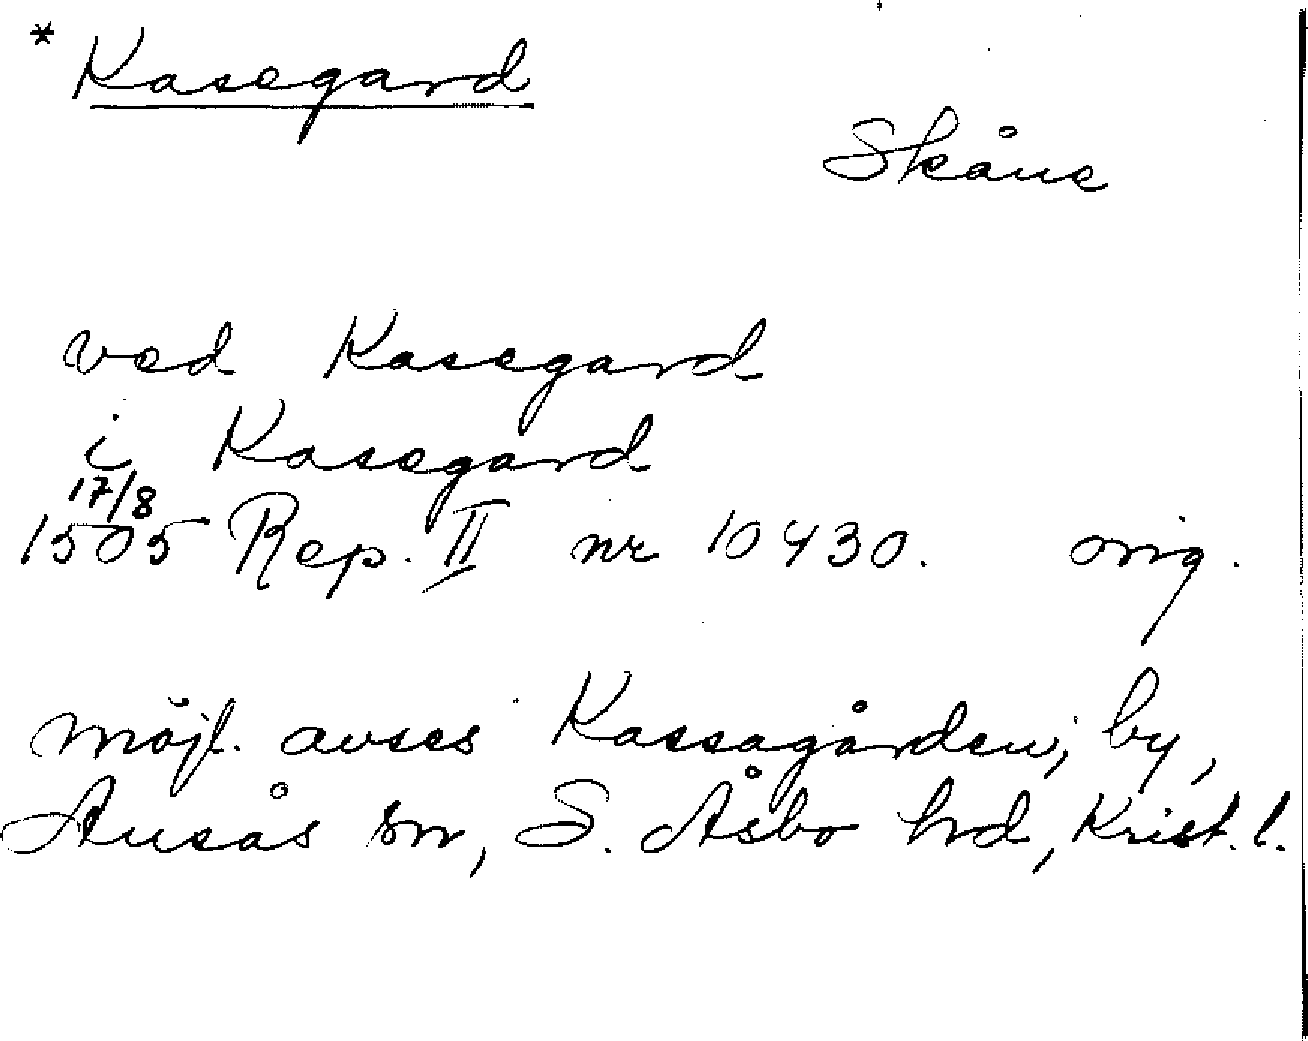 * Kasegard
Skåne
ved Kasegard
i Kasegard
17/8
1505 Rep. II nr 10430. orig.
möjl. avses Kassagården, by,
Ausås sn, S. Åsbo hd, Krist. l.